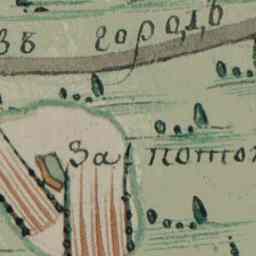 въ городъ
За потон